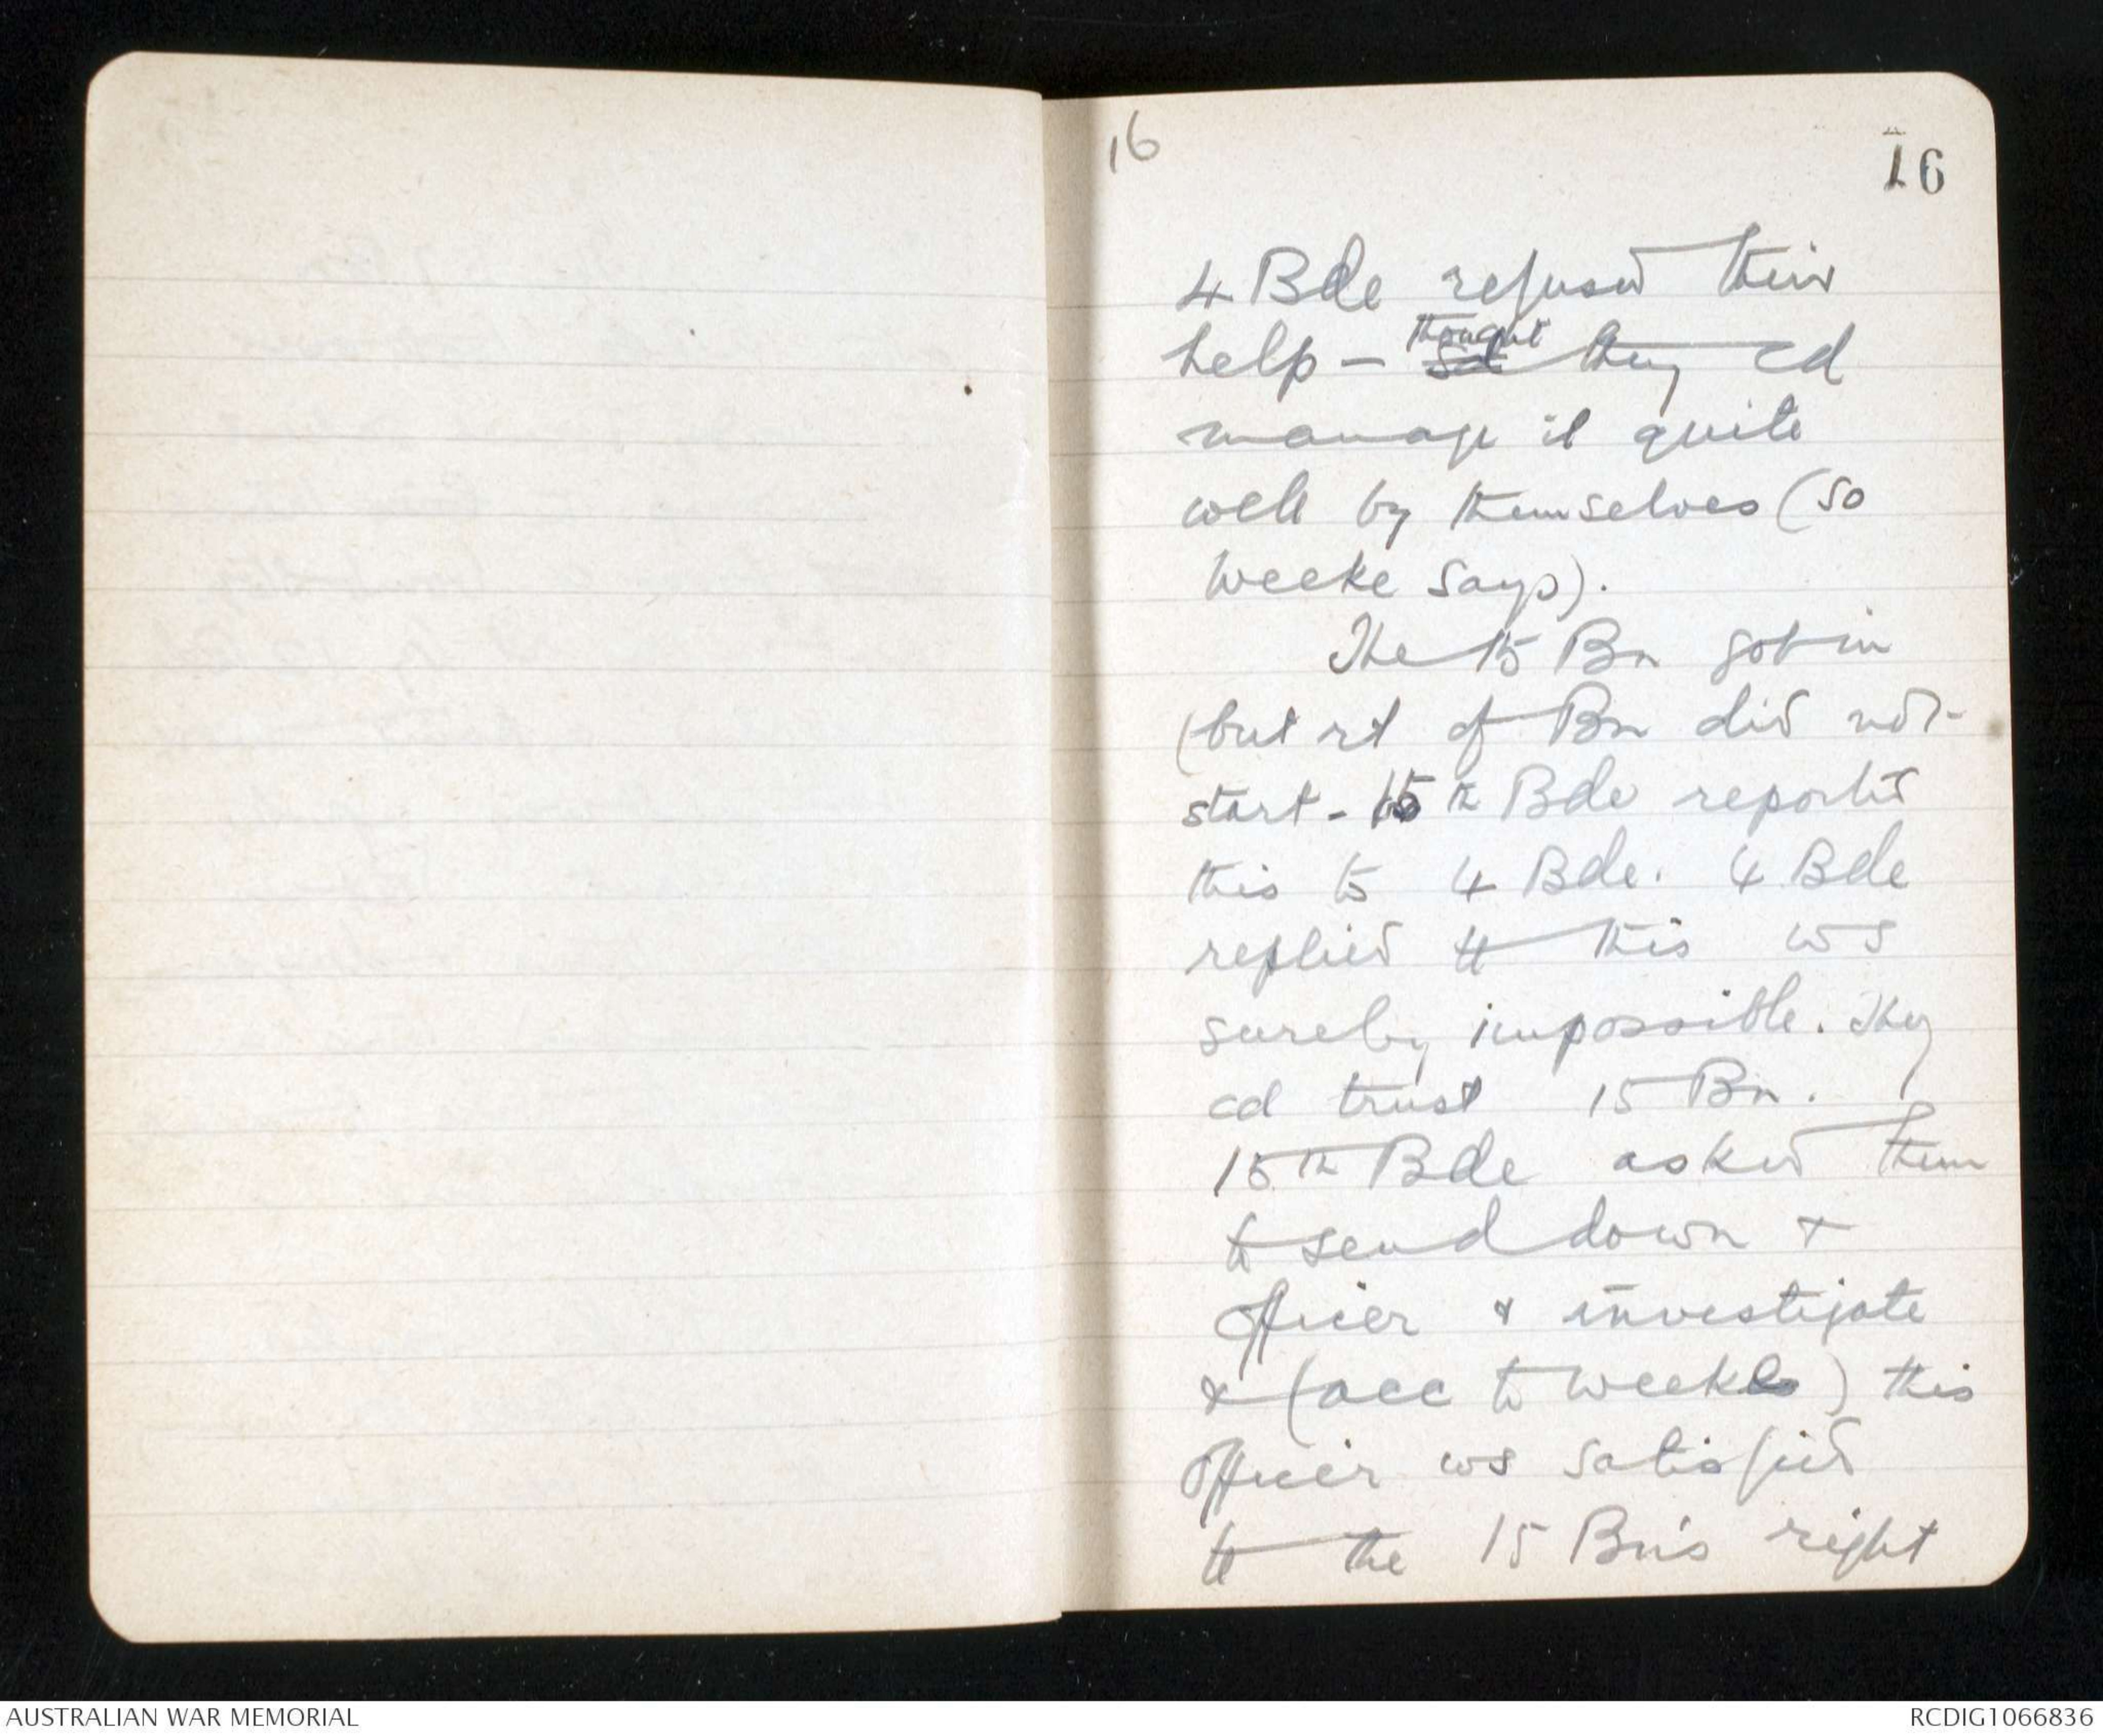 16
16
4 Bde refused their
help - sd thought they cd
manage it quite
well by themselves (so
Weeke says).
The 15 Bn got in
(but rt of Bn did not
start - 15th Bde reported
this to 4 Bde. 4 Bde
replied tt this ws
surely impossible. They
cd trust 15 Bn.
15th Bde asked them
to send down +
officer & investigate
& (acc to Weeke) this
officer ws satisfied
tt the 15 Bn's right
AUSTRALIAN WAR MEMORIAL
RCDIG1066836